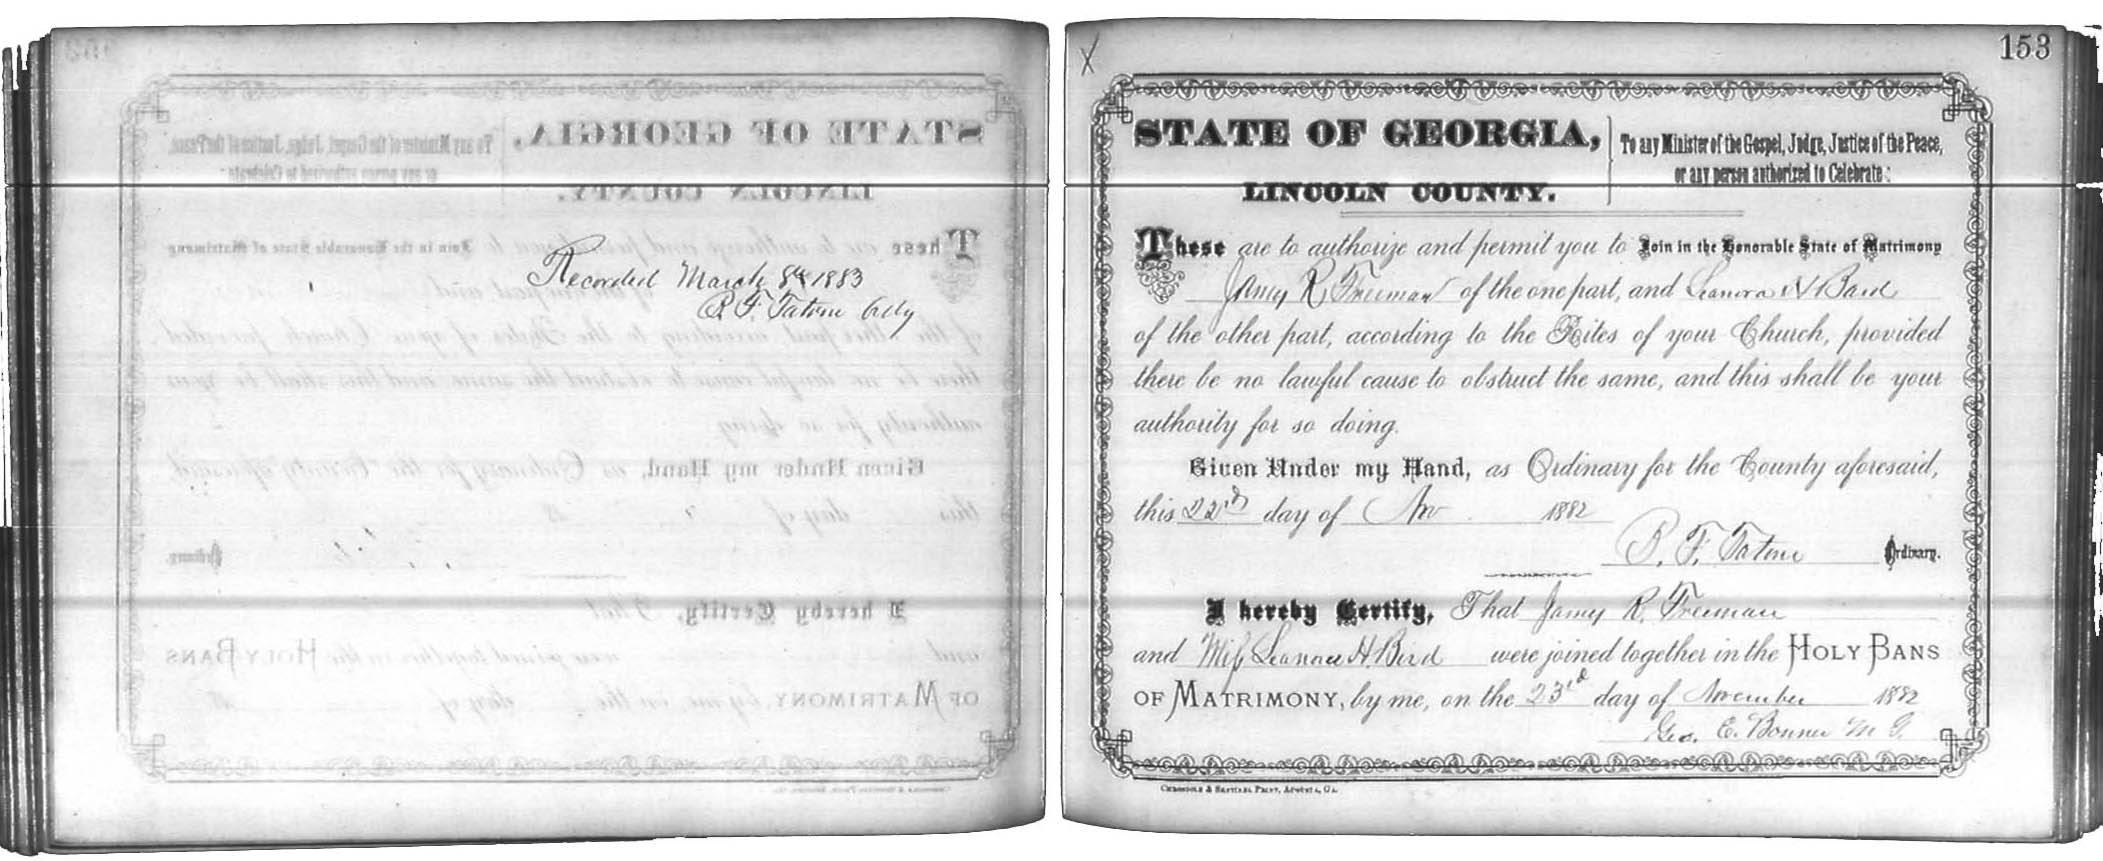 Recorded March 8th 1883
B. F. Tatom Ordy
X
153
STATE OF GEORGIA,
LINCOLN COUNTY.
To any Minister of the Gospel, Judge, Justice of the Peace,
or any person authorized to Celebrate:
These are to authorize and permit you to Join in the Honorable State of Matrimony
Jamey R. Freeman of the one part, and Leanora H Bard
of the other part, according to the Rites of your Church, provided
there be no lawful cause to obstruct the same, and this shall be your
authority for so doing.
Given Under my Hand, as Ordinary for the County aforesaid,
this 22nd day of Nov 1882
B. F. Tatom Ordinary.
I hereby Certify, That Jamey R. Freeman
and Miss H Bird were joined together in the HOLY BANS
OF MATRIMONY, by me, on the 23rd day of November 1882
Geo. E. Bonner M G.
CHRONICLE & SENTINEL PRINT, AUGUSTA, GA.